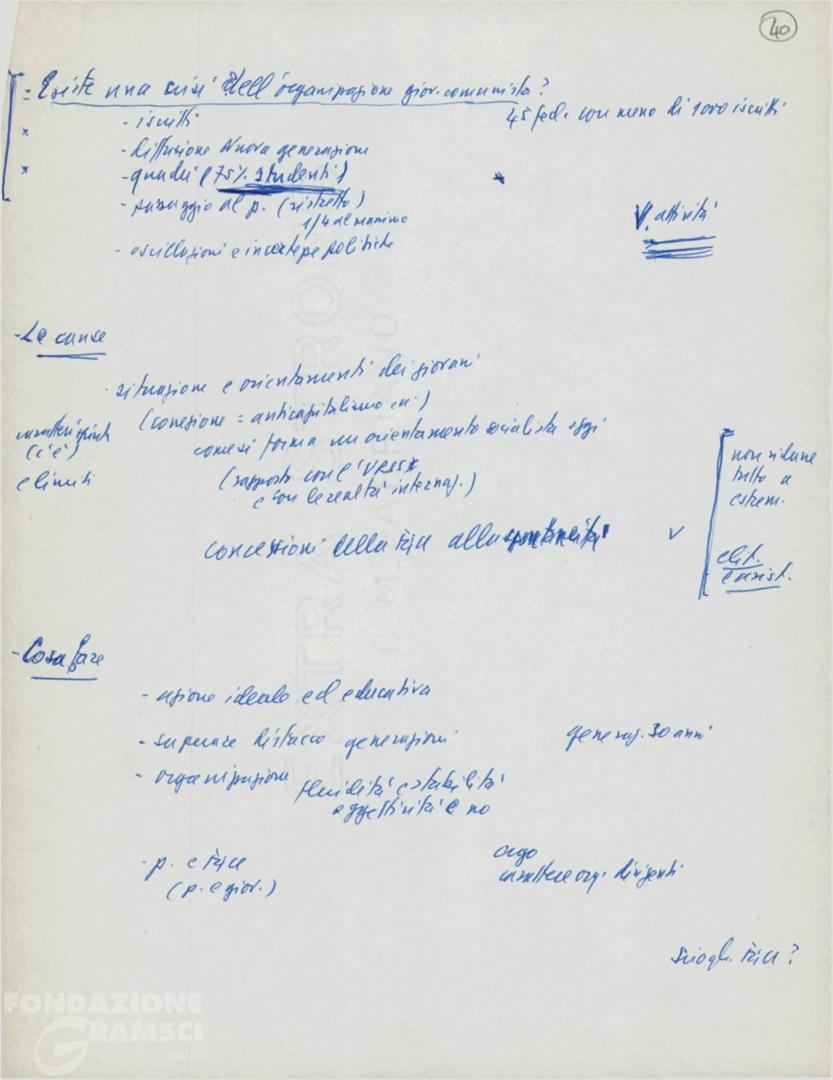 40
- Esiste una crisi dell'organizzazione giov. comunista?
- iscritti
45 fed. con meno di 1000 iscritti
- diffusione nuova generazione
- quadri (75% studenti)
- passaggio al p. (ristretto)
1/4 al massimo
V. attività
- oscillazioni e incertezze politiche
- Le cause
- situazione e orientamenti dei giovani
(coesione = anticapitalismo
come si forma un orientamento socialista oggi
(c'è)
e limiti
(rapporto con l'URSS
e con le realtà internaz.)
non ridurre
tutto a
estrem.
concessioni della FGCI alla spontaneità
v
- Cosa fare
- azione ideale ed educativa
- superare distacco generazioni
generaz. 30 anni
- organizzazione
fluidità e stabilità
oggettività e no
- p. e FGCI
(p. e giov.)
carattere org. dirigenti
sciogl. FGCI?
FONDAZIONE
GRAMSCI
onlus
EXTRA STRONG